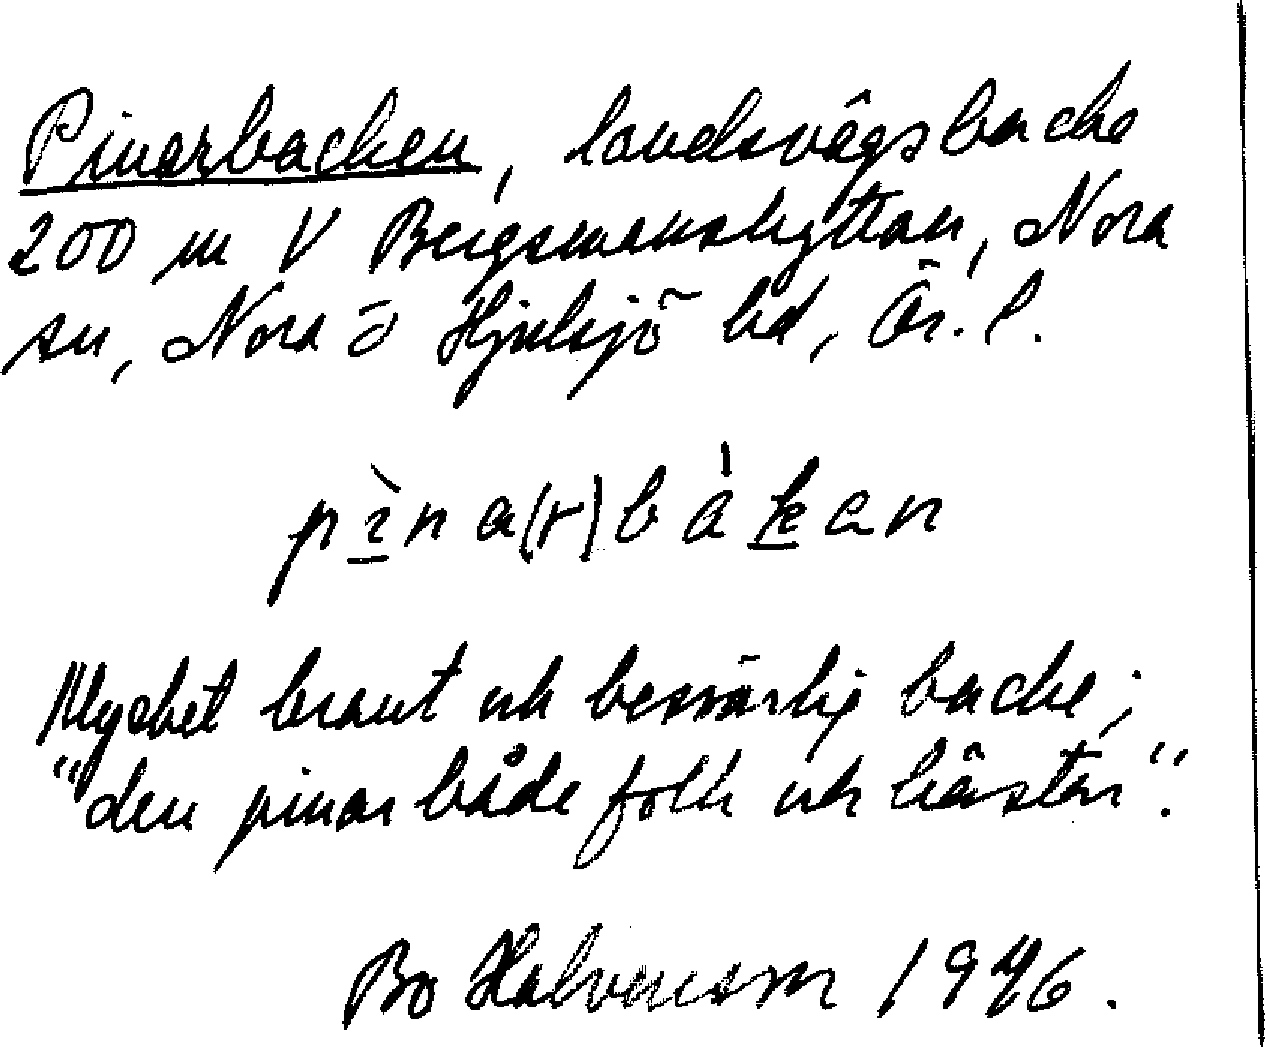 Pinarbacken, landsvägsbacke
200 m V Bergsmanshyttan, Nora
sn, Nora o Hjulsjö bd, Ör. l.
pìna(r)bákan
Mycket brant och besvärlig backe;
"den pinar både folk och hästar".
Bo Halvarsson 1946.